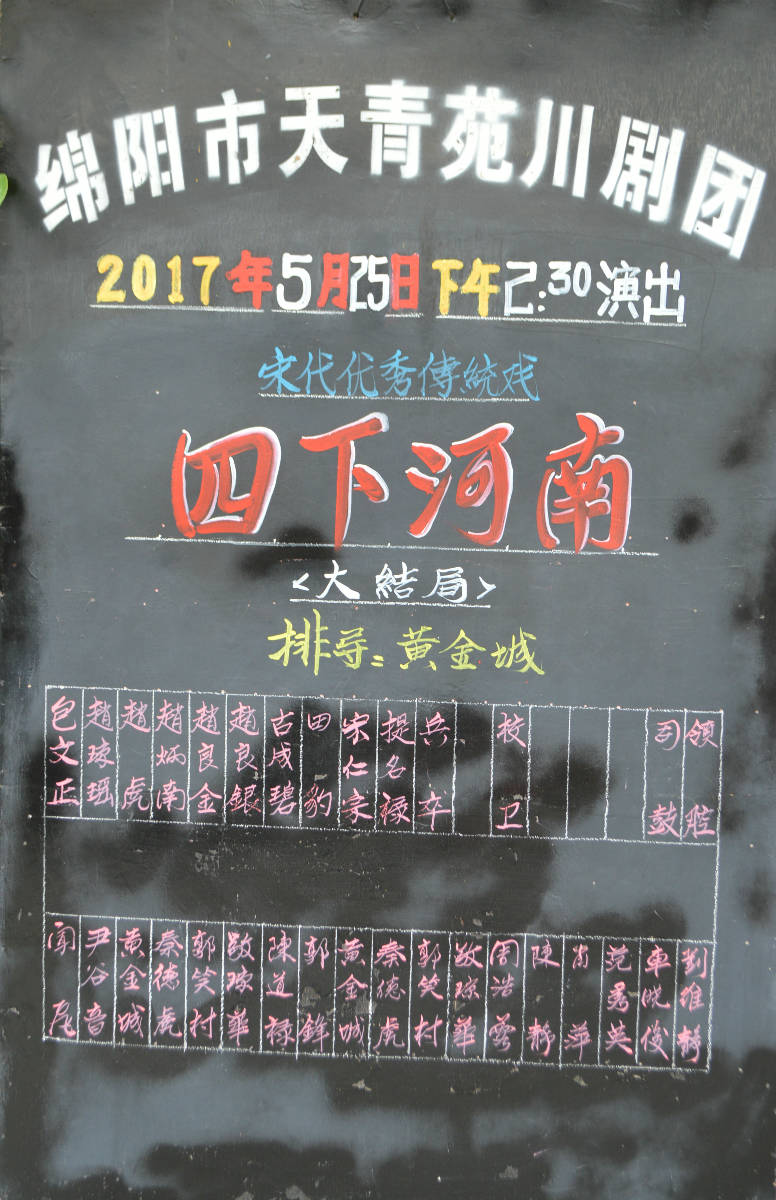 绵阳市天青苑川剧团
2017年5月25日下午2:30演出
宋代优秀傳統戏
四下河南
<大結局>
排导:黄金城
包文正
趙琼瑶
趙虎
趙炳南
趙良金
趙良銀
古成碧
田豹
宋仁宗
提名禄
兵卒
校卫
司鼓
领腔
闻尾
尹谷音
黄金城
秦德虎
郭笑村
敬琼華
陳道禄
郭鋒
黄金城
秦德虎
郭笑村
敬琼華
周浩
陳靜
肖萍
范秀英
車悦俊
劉维靜